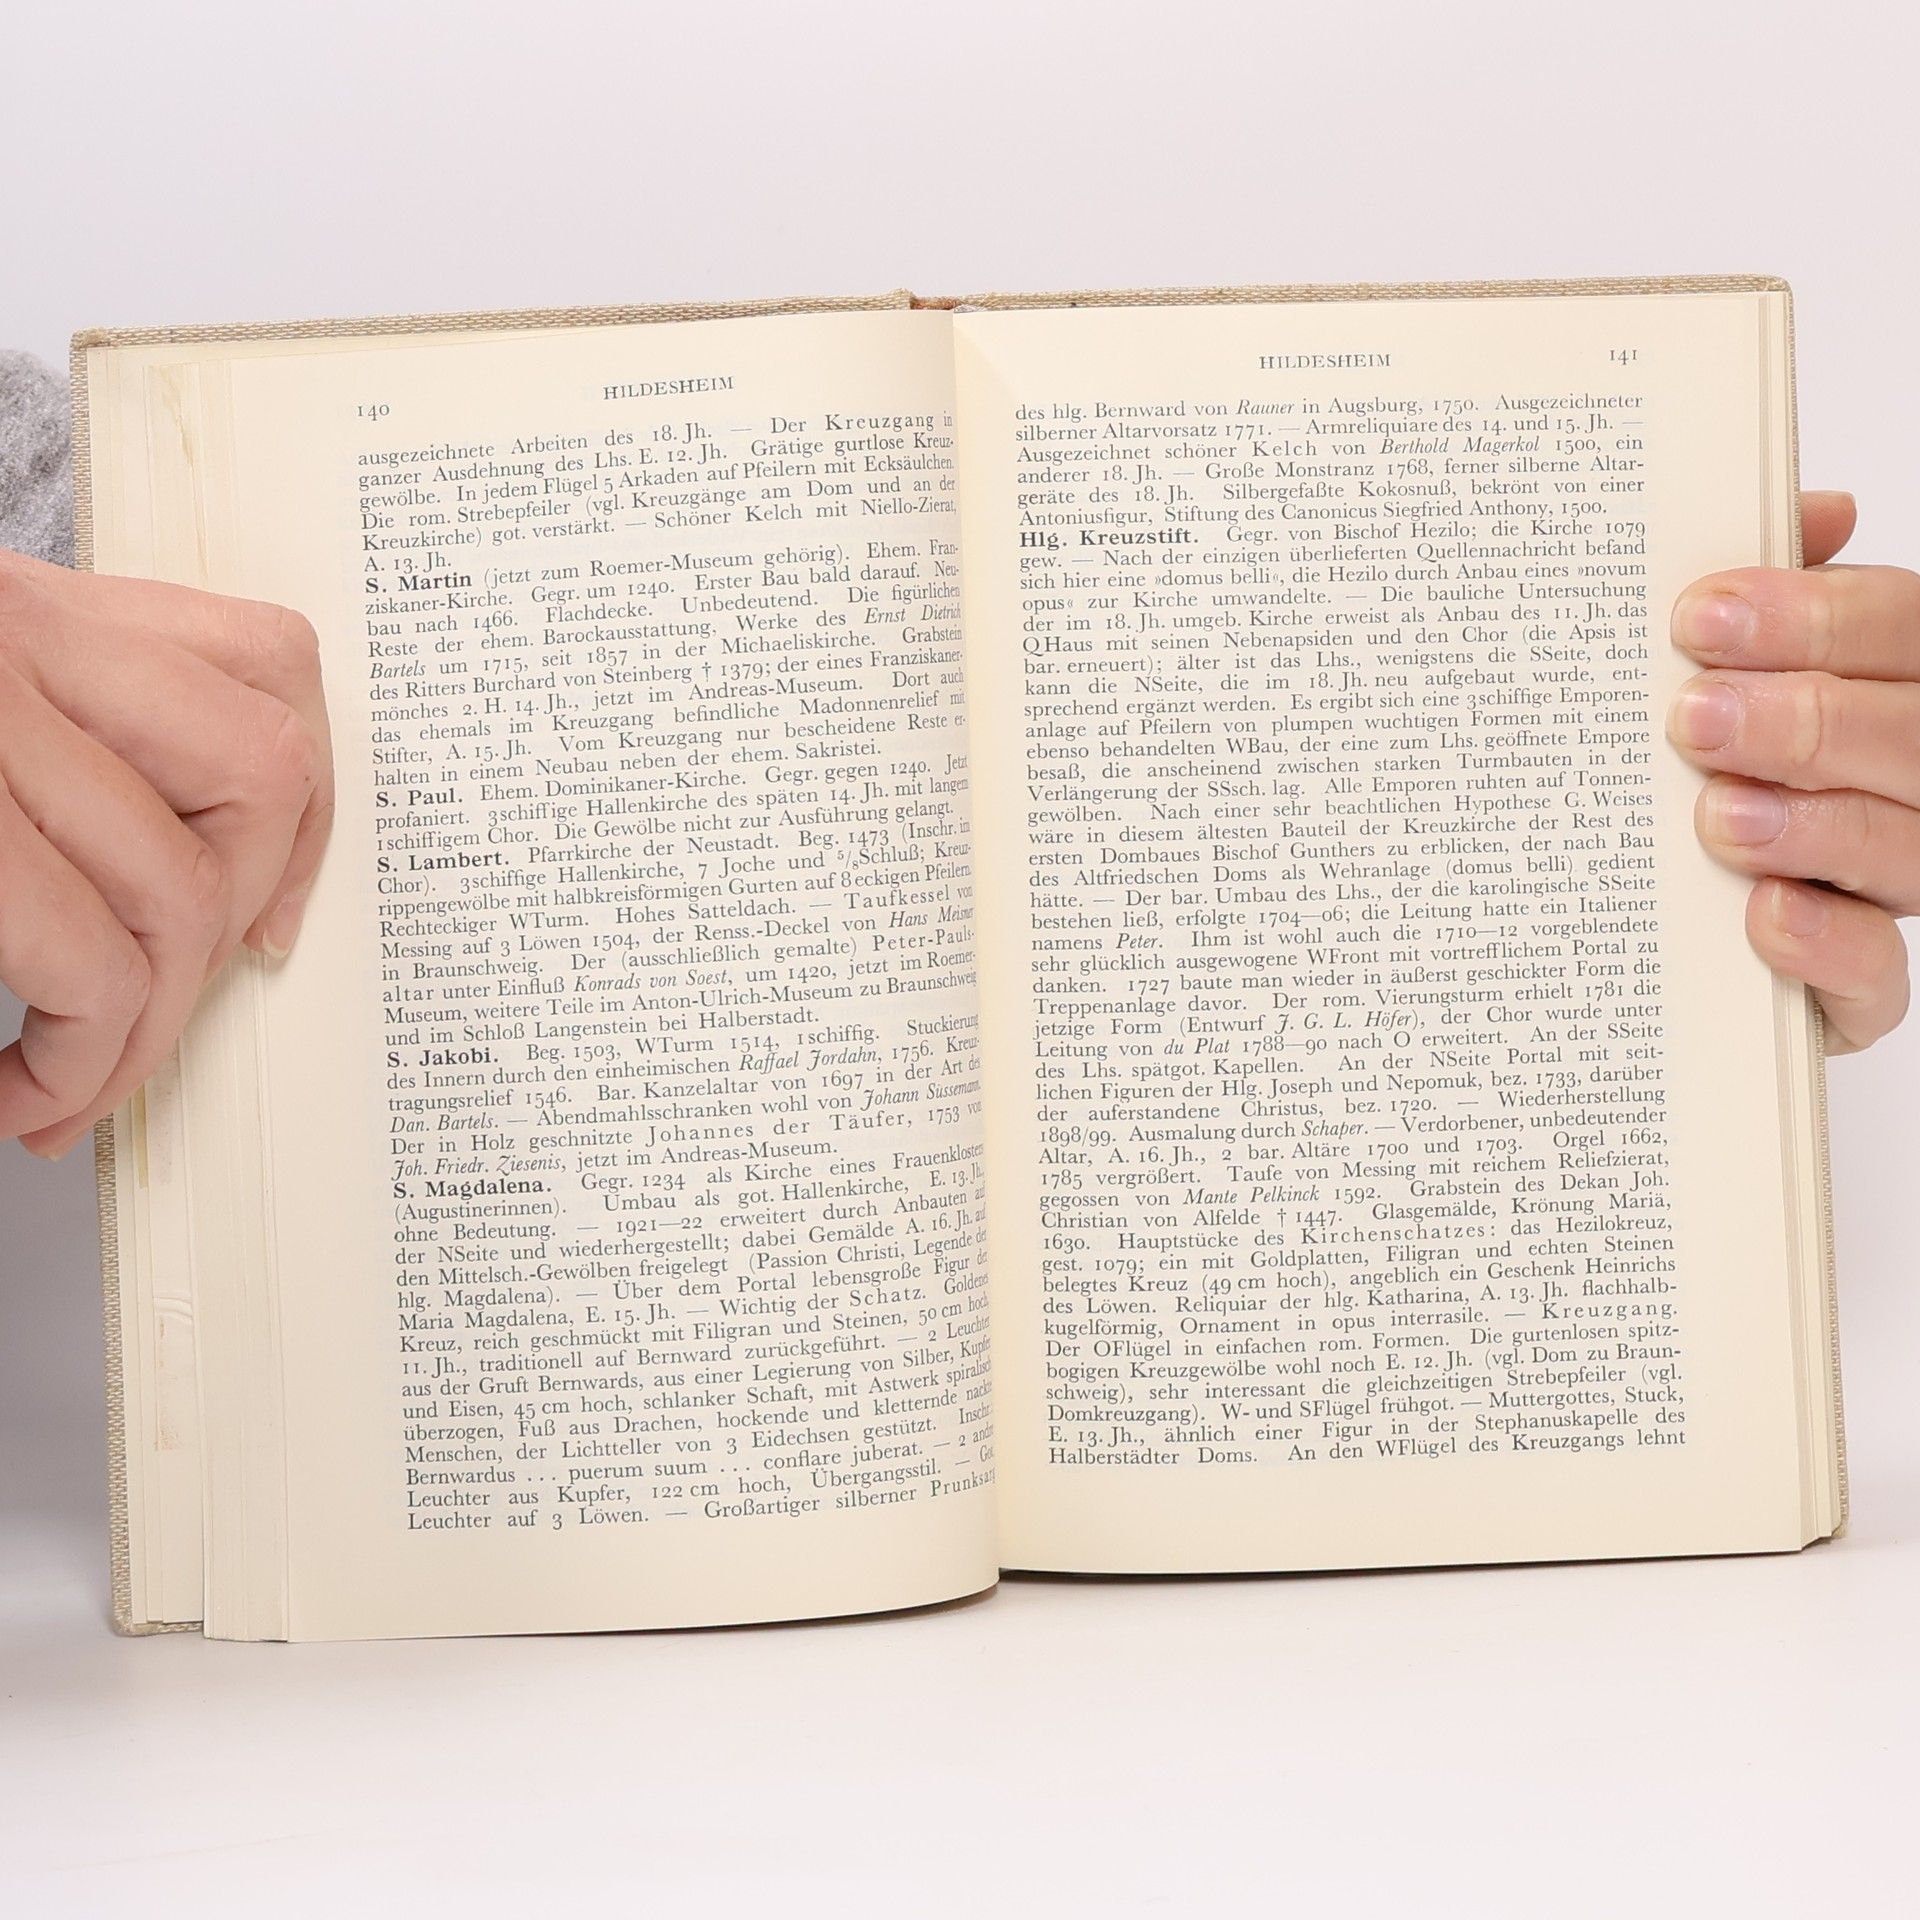 140
HILDESHEIM
ausgezeichnete Arbeiten des 18. Jh. — Der Kreuzgang in
ganzer Ausdehnung des Lhs. E. 12. Jh. Grätige gurtlose Kreuz-
gewölbe. In jedem Flügel 5 Arkaden auf Pfeilern mit Ecksäulchen.
Die rom. Strebepfeiler (vgl. Kreuzgänge am Dom und an der
Kreuzkirche) got. verstärkt. — Schöner Kelch mit Niello-Zierat,
A. 13. Jh.
S. Martin (jetzt zum Roemer-Museum gehörig). Ehem. Fran-
ziskaner-Kirche. Gegr. um 1240. Erster Bau bald darauf. Neu-
bau nach 1466. Flachdecke. Unbedeutend. Die figürlichen
Reste der ehem. Barockausstattung, Werke des Ernst Dietrich
Bartels um 1715, seit 1857 in der Michaeliskirche. Grabstein
des Ritters Burchard von Steinberg † 1379; der eines Franziskaner-
mönches 2. H. 14. Jh., jetzt im Andreas-Museum. Dort auch
das ehemals im Kreuzgang befindliche Madonnenrelief mit
Stifter, A. 15. Jh. Vom Kreuzgang nur bescheidene Reste er-
halten in einem Neubau neben der ehem. Sakristei.
S. Paul. Ehem. Dominikaner-Kirche. Gegr. gegen 1240. Jetzt
profaniert. 3schiffige Hallenkirche des späten 14. Jh. mit langem
1schiffigem Chor. Die Gewölbe nicht zur Ausführung gelangt.
S. Lambert. Pfarrkirche der Neustadt. Beg. 1473 (Inschr. im
Chor). 3schiffige Hallenkirche, 7 Joche und 5/8Schluß; Kreuz-
rippengewölbe mit halbkreisförmigen Gurten auf 8eckigen Pfeilern.
Rechteckiger WTurm. Hohes Satteldach. — Taufkessel von
Messing auf 3 Löwen 1504, der Renss.-Deckel von Hans Meisner
in Braunschweig. Der (ausschließlich gemalte) Peter-Pauls-
altar unter Einfluß Konrads von Soest, um 1420, jetzt im Roemer-
Museum, weitere Teile im Anton-Ulrich-Museum zu Braunschweig
und im Schloß Langenstein bei Halberstadt.
S. Jakobi. Beg. 1503, WTurm 1514, 1schiffig. Stuckierung
des Innern durch den einheimischen Raffael Jordahn, 1756. Kreuz-
tragungsrelief 1546. Bar. Kanzelaltar von 1697 in der Art des
Dan. Bartels. — Abendmahlsschranken wohl von Johann Süssemann.
Der in Holz geschnitzte Johannes der Täufer, 1753 von
Joh. Friedr. Ziesenis, jetzt im Andreas-Museum.
S. Magdalena. Gegr. 1234 als Kirche eines Frauenklosters
(Augustinerinnen). Umbau als got. Hallenkirche, E. 13. Jh.,
ohne Bedeutung. — 1921—22 erweitert durch Anbauten auf
der NSeite und wiederhergestellt; dabei Gemälde A. 16. Jh. auf
den Mittelsch.-Gewölben freigelegt (Passion Christi, Legende der
hlg. Magdalena). — Über dem Portal lebensgroße Figur der
Maria Magdalena, E. 15. Jh. — Wichtig der Schatz. Goldenes
Kreuz, reich geschmückt mit Filigran und Steinen, 50 cm hoch,
11. Jh., traditionell auf Bernward zurückgeführt. — 2 Leuchter
aus der Gruft Bernwards, aus einer Legierung von Silber, Kupfer
und Eisen, 45 cm hoch, schlanker Schaft, mit Astwerk spiralisch
überzogen, Fuß aus Drachen, hockende und kletternde nackte
Menschen, der Lichtteller von 3 Eidechsen gestützt. Inschr.:
Bernwardus ... puerum suum ... conflare juberat. — 2 andre
Leuchter aus Kupfer, 122 cm hoch, Übergangsstil. — Got.
Leuchter auf 3 Löwen. — Großartiger silberner Prunksarg
HILDESHEIM
141
des hlg. Bernward von Rauner in Augsburg, 1750. Ausgezeichneter
silberner Altarvorsatz 1771. — Armreliquiare des 14. und 15. Jh. —
Ausgezeichnet schöner Kelch von Berthold Magerkol 1500, ein
anderer 18. Jh. — Große Monstranz 1768, ferner silberne Altar-
geräte des 18. Jh. Silbergefaßte Kokosnuß, bekrönt von einer
Antoniusfigur, Stiftung des Canonicus Siegfried Anthony, 1500.
Hlg. Kreuzstift. Gegr. von Bischof Hezilo; die Kirche 1079
gew. — Nach der einzigen überlieferten Quellennachricht befand
sich hier eine »domus belli«, die Hezilo durch Anbau eines »novum
opus« zur Kirche umwandelte. — Die bauliche Untersuchung
der im 18. Jh. umgeb. Kirche erweist als Anbau des 11. Jh. das
QHaus mit seinen Nebenapsiden und den Chor (die Apsis ist
bar. erneuert); älter ist das Lhs., wenigstens die SSeite, doch
kann die NSeite, die im 18. Jh. neu aufgebaut wurde, ent-
sprechend ergänzt werden. Es ergibt sich eine 3schiffige Emporen-
anlage auf Pfeilern von plumpen wuchtigen Formen mit einem
ebenso behandelten WBau, der eine zum Lhs. geöffnete Empore
besaß, die anscheinend zwischen starken Turmbauten in der
Verlängerung der SSsch. lag. Alle Emporen ruhten auf Tonnen-
gewölben. Nach einer sehr beachtlichen Hypothese G. Weises
wäre in diesem ältesten Bauteil der Kreuzkirche der Rest des
ersten Dombaues Bischof Gunthers zu erblicken, der nach Bau
des Altfriedschen Doms als Wehranlage (domus belli) gedient
hätte. — Der bar. Umbau des Lhs., der die karolingische SSeite
bestehen ließ, erfolgte 1704—06; die Leitung hatte ein Italiener
namens Peter. Ihm ist wohl auch die 1710—12 vorgeblendete
sehr glücklich ausgewogene WFront mit vortrefflichem Portal zu
danken. 1727 baute man wieder in äußerst geschickter Form die
Treppenanlage davor. Der rom. Vierungsturm erhielt 1781 die
jetzige Form (Entwurf J. G. L. Höfer), der Chor wurde unter
Leitung von du Plat 1788—90 nach O erweitert. An der SSeite
des Lhs. spätgot. Kapellen. An der NSeite Portal mit seit-
lichen Figuren der Hlg. Joseph und Nepomuk, bez. 1733, darüber
der auferstandene Christus, bez. 1720. — Wiederherstellung
1898/99. Ausmalung durch Schaper. — Verdorbener, unbedeutender
Altar, A. 16. Jh., 2 bar. Altäre 1700 und 1703. Orgel 1662,
1785 vergrößert. Taufe von Messing mit reichem Reliefzierat,
gegossen von Mante Pelkinck 1592. Grabstein des Dekan Joh.
Christian von Alfelde † 1447. Glasgemälde, Krönung Mariä,
1630. Hauptstücke des Kirchenschatzes: das Hezilokreuz,
gest. 1079; ein mit Goldplatten, Filigran und echten Steinen
belegtes Kreuz (49 cm hoch), angeblich ein Geschenk Heinrichs
des Löwen. Reliquiar der hlg. Katharina, A. 13. Jh. flachhalb-
kugelförmig, Ornament in opus interrasile. — Kreuzgang.
Der OFlügel in einfachen rom. Formen. Die gurtenlosen spitz-
bogigen Kreuzgewölbe wohl noch E. 12. Jh. (vgl. Dom zu Braun-
schweig), sehr interessant die gleichzeitigen Strebepfeiler (vgl.
Domkreuzgang). W- und SFlügel frühgot. — Muttergottes, Stuck,
E. 13. Jh., ähnlich einer Figur in der Stephanuskapelle des
Halberstädter Doms. An den WFlügel des Kreuzgangs lehnt